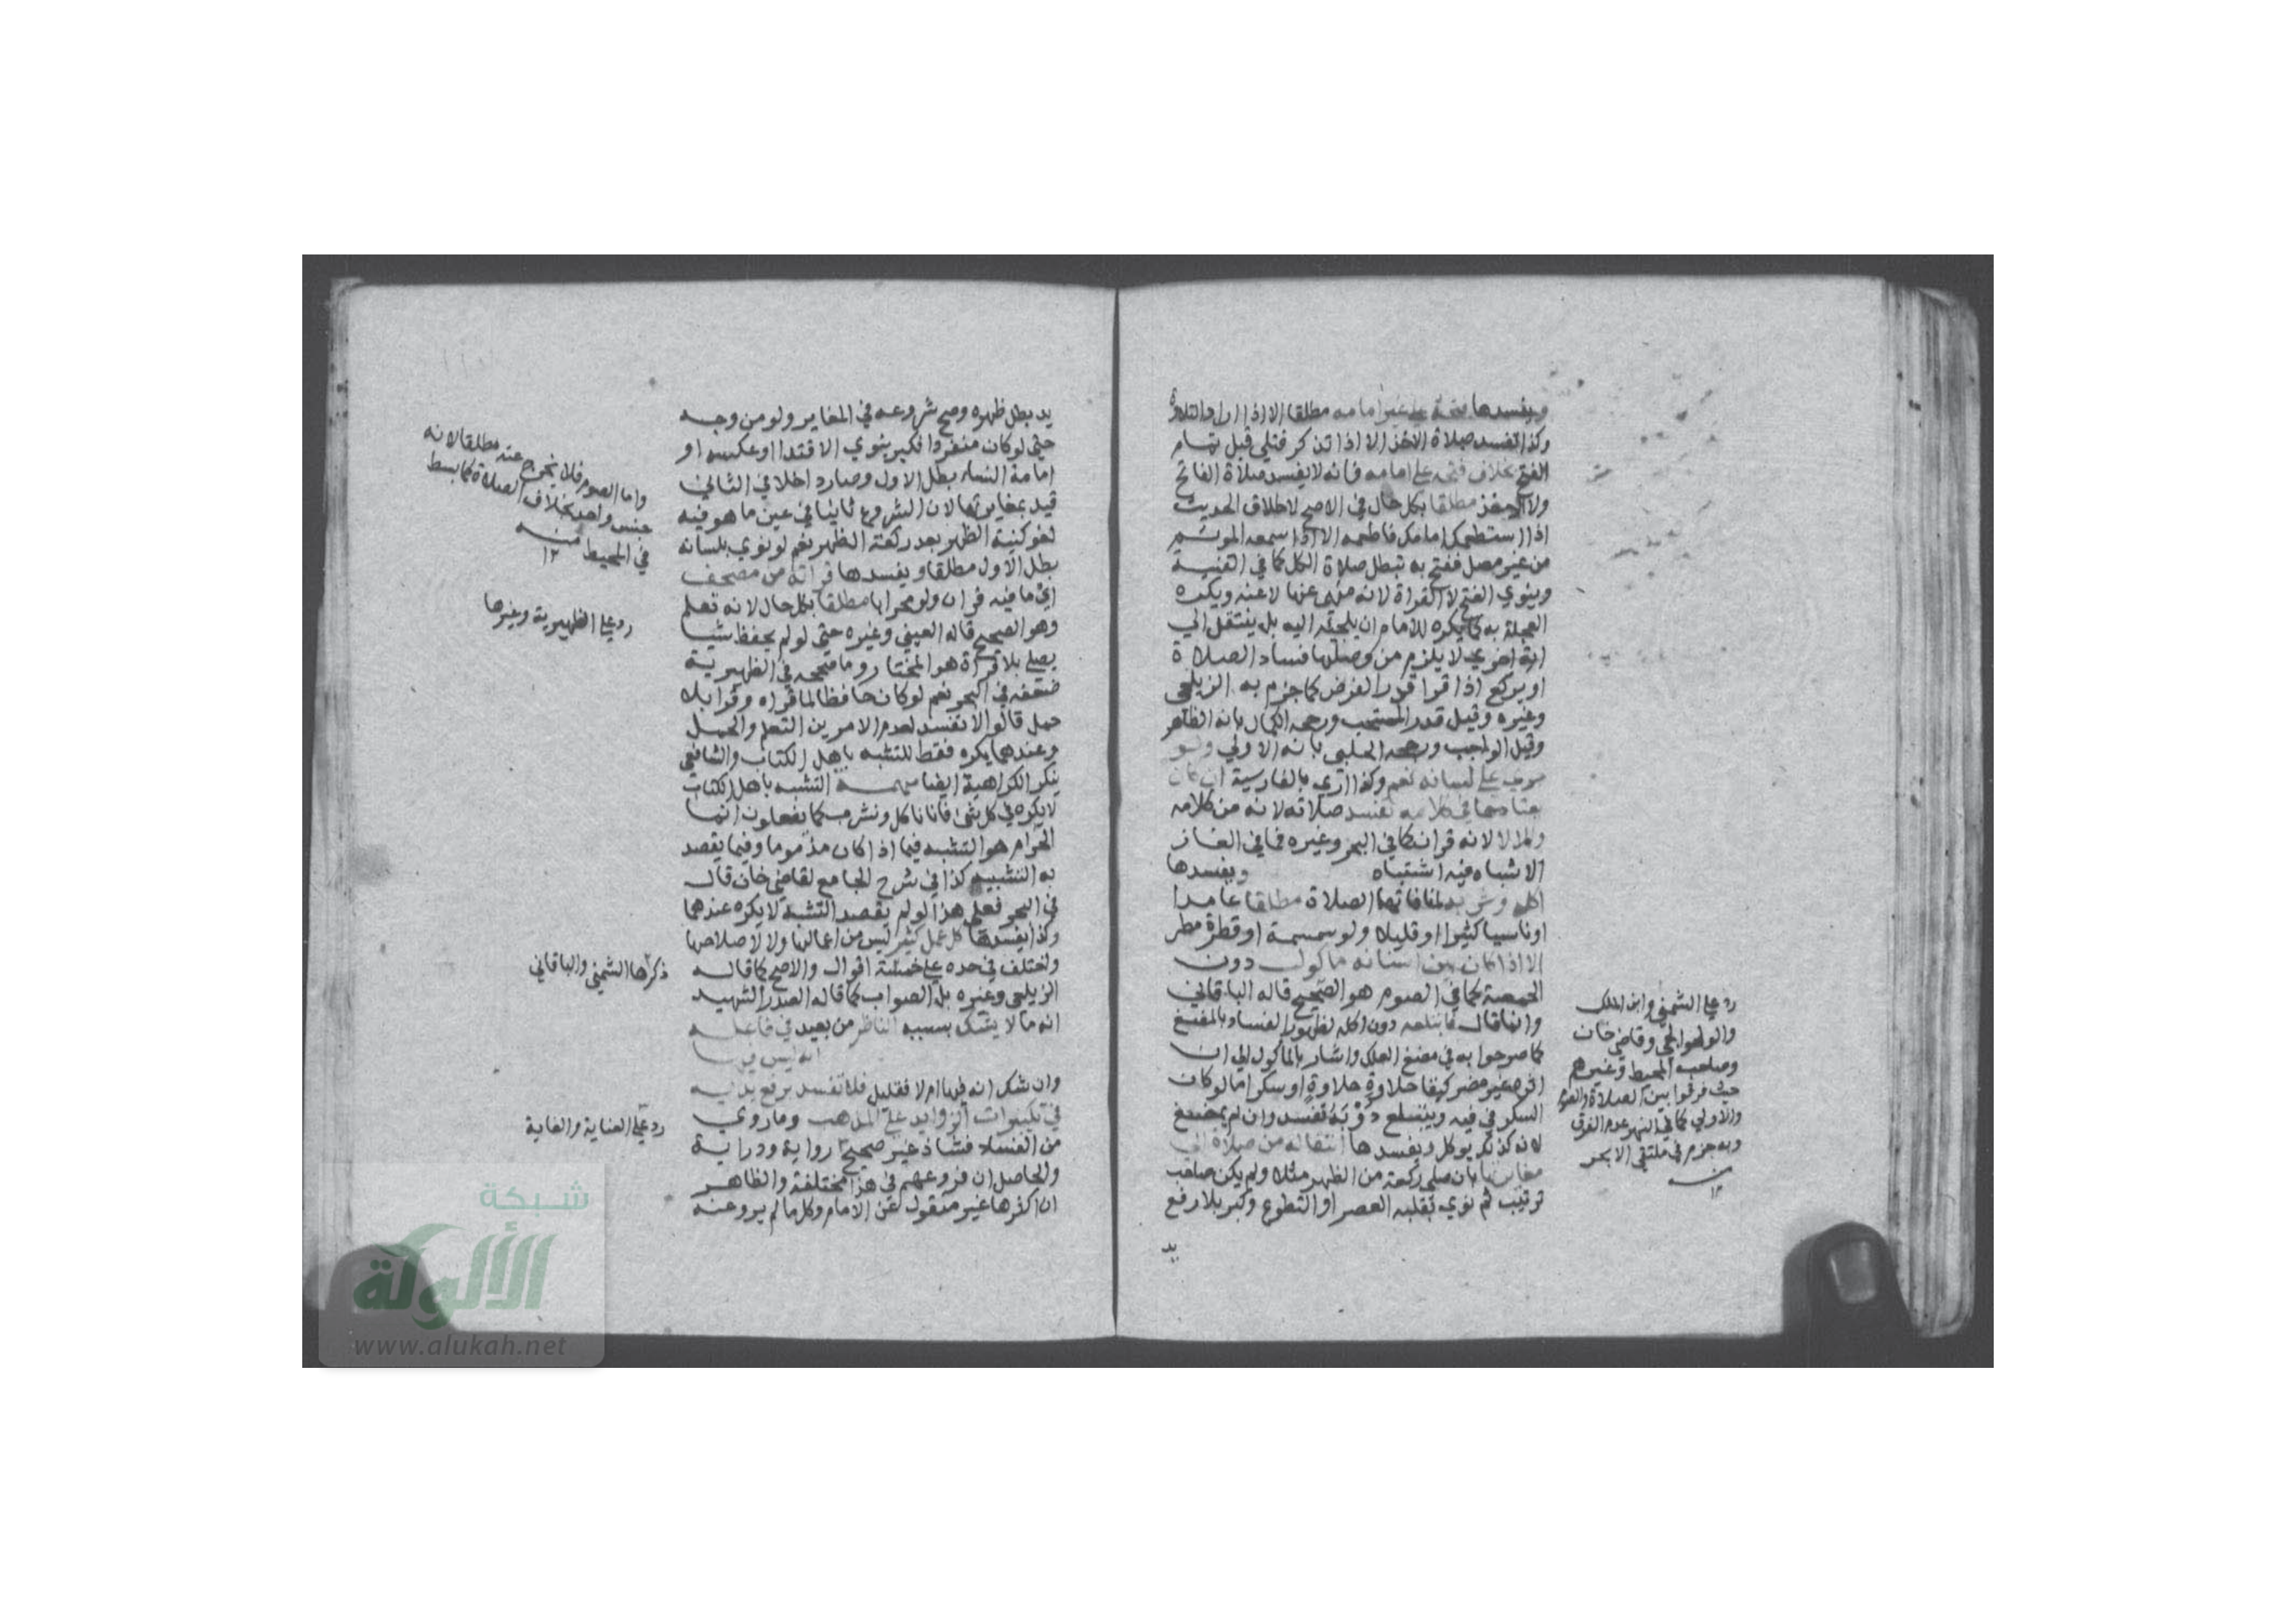 ويفسدها فتحه على غير امامه مطلقا الا اذا اراد التلاوة
وكذا تفسد صلاة الاخذ الا اذا تذكر فتلى قبل تمام
الفتح بخلاف فتحه على امامه فانه لا يفسد صلاة الفاتح
ولا الاخذ مطلقا بكل حال في الاصح لاطلاق الحديث
اذا استطعمك امامك فاطعمه الا اذا سمعه الموتم
من غير مصل ففتح به تبطل صلاة الكل كما في القنية
وينوي الفتح لا القراة لانه منهي عنها لا عنه ويكره
العجلة به كما يكره للامام ان يلجيه اليه بل ينتقل الي
اية اخري لا يلزم من وصلها فساد الصلاة
او يركع اذا قرا قدر الفرض كما جزم به الزيلعي
وغيره وقيل قدر المستحب ورجحه الكمال بانه الظاهر
وقيل الواجب ورجحه الحلبي بانه الاولي ولو
جري على لسانه نعم وكذا اري بالفارسية ان كان
يعتادها في كلامه تفسد صلاته لانه من كلامه
والا لا لانه قران كما في البحر وغيره فما في الغاز
الاشباه فيه اشتباه ويفسدها
اكله وشربه لمنافاتها الصلاة مطلقا عامدا
او ناسيا كثيرا او قليلا ولو سمسمة او قطرة مطر
الا اذا كان بين اسنانه ماكول دون
الحمصة كما في الصوم هو الصحيح قاله الباقاني
وانما قال فابتلعه دون اكله لظهور الفساد بالمضغ
كما صرحوا به في مضغ العلك واشار بالماكول الي ان
اثره غير مضر كبقا حلاوة حلاوة او سكر اما لو كان
السكر في فيه ويبتلع ذوبه تفسد وان لم يمضغ
لانه كذلك يوكل ويفسدها انتقاله من صلاة الى
مغايرتها بان صلى ركعة من الظهر مثلا ولم يكن صاحب
ترتيب ثم نوي بقلبه العصر او التطوع وكبر بلا رفع
يد
رد على الشمني وابن الملك
والولوالجي وقاضي خان
وصاحب المحيط وغيرهم
حيث فرقوا بين الصلاة والصوم
والاولي كما في النهر عدم الفرق
وبه جزم في ملتقي الابحر
منه
١٢
يد بطل ظهره وصح شروعه في المغاير ولو من وجه
حتى لو كان منفردا فكبر ينوي الاقتدا او عكسه او
امامة النسا بطل الاول وصار داخلا في الثاني
قيد بمغايرتها لان الشروع ثانيا في عين ما هو فيه
لغو كنية الظهر بعد ركعة الظهر نعم لو نوي بلسانه
بطل الاول مطلقا ويفسدها قراته من مصحف
اي ما فيه قران ولو محرابا مطلقا بكل حال لانه تعلم
وهو الصحيح قاله العيني وغيره حتى لو لم يحفظ شيا
يصلي بلا قراة هو المختار وما صححه في الظهيرية
ضعفه في البحر نعم لو كان حافظا لما قراه وقرا بلا
حمل قالوا لا تفسد لعدم الامرين التعلم والحمل
وعندهما يكره فقط للتشبه باهل الكتاب والشافعي
ينكر الكراهية ايضا التشبه باهل الكتاب
لا يكره في كل شئ فانا ناكل ونشرب كما يفعلون انما
الحرام هو التشبه فيما اذا كان مذموما وفيما يقصد
به التشبيه كذا في شرح الجامع لقاضي خان قال
في البحر فعلى هذا لو لم يقصد التشبه لا يكره عندهما
وكذا يفسدها كل عمل كثير ليس من اعمالها ولا لاصلاحها
واختلف في حده على خمسة اقوال والاصح كما قاله
الزيلعي وغيره بل الصواب كما قاله الصدر الشهيد
انه ما لا يشك بسببه الناظر من بعيد في فاعله
انه ليس فيها
وان شك انه فيها ام لا فقليل فلا تفسد برفع يديه
في تكبيرات الزوايد على المذهب وما روي
من الفساد فشاذ غير صحيح رواية ودراية
والحاصل ان فروعهم في هذا مختلفة والظاهر
ان اكثرها غير منقول عن الامام وكل ما لم يرو عنه
واما الصوم فلا يخرج عنه مطلقا لانه
جنس واحد بخلاف الصلاة كما بسط
في المحيط منه
١٢
رد على الظهيرية وغيرها
ذكرها الشمني والباقاني
رد على العناية والغاية
شبكة
الألوكة
www.alukah.net